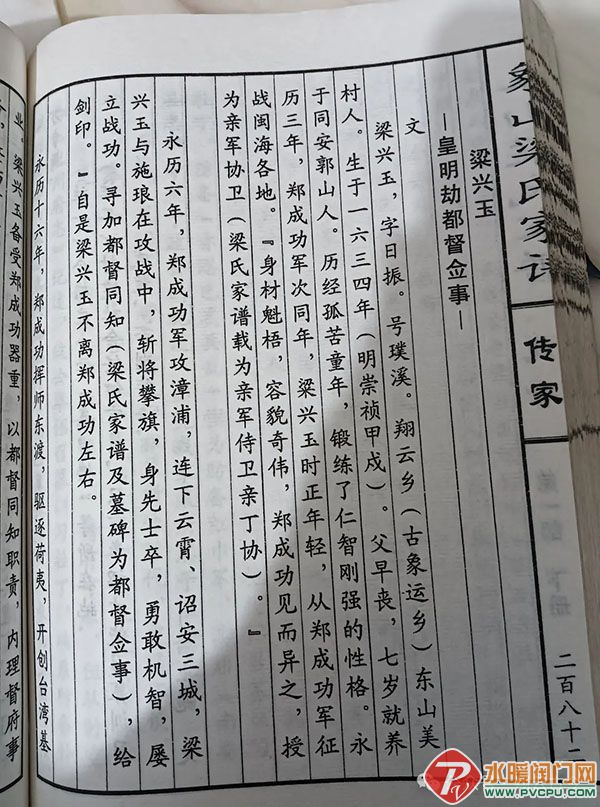 象山梁氏家谱
传家
二百八十二
梁兴玉
—皇明劫都督佥事—
文
梁兴玉，字日振。号璞溪。翔云乡（古象运乡）东山美
村人。生于一六三四年（明崇祯甲戍）。父早丧，七岁就养
于同安郭山人。历经孤苦童年，锻练了仁智刚强的性格。永
历三年，郑成功军次同年，梁兴玉时正年轻，从郑成功军征
战闽海各地。『身材魁梧，容貌奇伟，郑成功见而异之，授
为亲军协卫（梁氏家谱载为亲军侍卫亲丁协）。』
永历六年，郑成功军攻漳浦，连下云霄、诏安三城，梁
兴玉与施琅在攻战中，斩将攀旗，身先士卒，勇敢机智，屡
立战功。寻加都督同知（梁氏家谱及墓碑为都督佥事），给
剑印。』自是梁兴玉不离郑成功左右。
永历十六年，郑成功挥师东渡，驱逐荷夷，开创台湾基
业。梁兴玉备受郑成功器重，以都督同知职责，内理督府事
水暖阀门网
WWW.PVCPU.COM